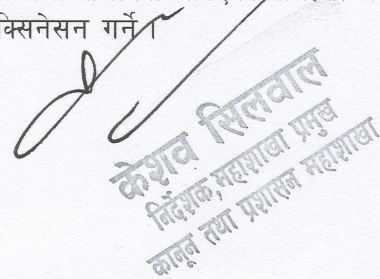 क्सिनेसन गर्ने।
केशव सिलवाल
निर्देशक, महाशाखा प्रमुख
कानून तथा प्रशासन महाशाखा